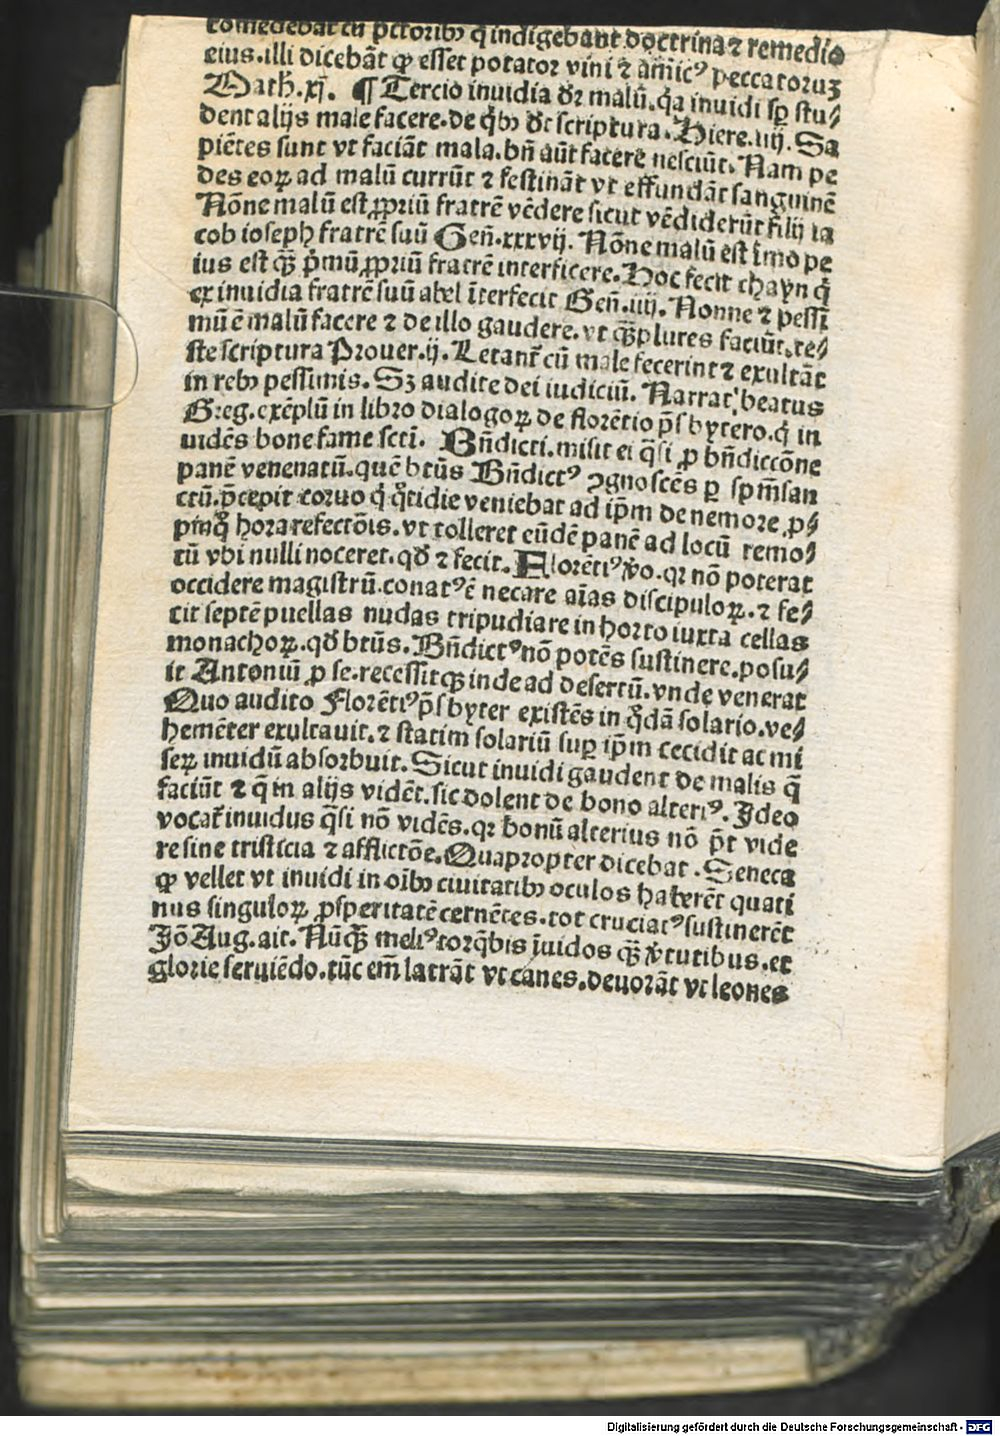 comedebat cū pctoribꝰ q̄ indigebant doctrina ⁊ remedio
eius. illi dicebāt ꝙ esset potator vini ⁊ amic⁹ peccatoruꝫ
Math̄. xj. ¶ Tercio inuidia dr̄ malū. q̄a inuidi sꝑ stu⸗
dent alijs male facere. de qb̄ꝫ dt̄ scriptura. Hiere. iiij. Sa
piētes sunt vt faciāt mala. bn̄ aūt facere nesciūt. Nam pe
des eoꝝ ad malū currūt ⁊ festināt vt effundāt sanguinē
Nōne malū est ꝓpriū fratrē vēdere sicut vēdiderūt filij ia
cob ioseph fratrē suū Geñ. xxxvij. Nōne malū est īmo pe
ius est qꝫ̄ p̄mū ꝓpriū fratrē interficere. Hoc fecit chayn q̇
ex inuidia fratrē suū abel īterfecit Geñ. iiij. Nonne ⁊ pessi
mū ē malū facere ⁊ de illo gaudere. vt qꝫ̄plures faciūt. te⸗
ste scriptura Prouer. ij. Letant̄ cū male fecerint ⁊ exultāt
in rebꝫ pessimis. Sꝫ audite dei iudiciū. Narrat beatus
Greg. exēplū in libro dialogoꝝ de florētio p̄sbytero. q̇ in
uidēs bone fame scti. Bn̄dicti. misit ei q̄si ꝓ bn̄dictōne
panē venenatū. quē btūs Bn̄dict⁹ ꝯgnoscēs ꝑ spm̄ san
ctū. p̄cepit coruo q̇ q̄tidie veniebat ad ip̄m de nemore ꝓ⸗
pinq̄ hora refectōis. vt tolleret eūdē panē ad locū remo⸗
tū vbi nulli noceret. qd̄ ⁊ fecit. Florēti⁹ ꝟo. qꝛ nō poterat
occidere magistrū. conat⁹ ē necare aīas discipuloꝝ. ⁊ fe⸗
cit septē puellas nudas tripudiare in horto iuxta cellas
monachoꝝ. qd̄ btūs. Bn̄dict⁹ nō potēs sustinere. posu⸗
it Antoniū ꝓ se. recessitqꝫ inde ad desertū. vnde venerat
Quo audito Florēti⁹ p̄sbyter existēs in q̄dā solario. ve⸗
hemēter exultauit. ⁊ statim solariū suꝑ ip̄m cecidit ac mi
seꝝ inuidū absorbuit. Sicut inuidi gaudent de malis q̄
faciūt ⁊ q̄ in alijs vidēt. sic dolent de bono alteri⁹. Ideo
vocat̄ inuidus q̄si nō vidēs. qꝛ bonū alterius nō p̄t vide
re sine tristicia ⁊ afflictōe. Quapropter dicebat. Seneca
ꝙ vellet vt inuidi in oībꝫ ciuitatibꝫ oculos haberēt quati
nus singuloꝝ ꝓsperitatē cernētes. tot cruciat⁹ sustinerēt
Iō Aug. ait. Nūqꝫ̄ meli⁹ torq̄bis īuidos qꝫ̄ ꝟtutibus. et
glorie seruiēdo. tūc em̄ latrāt vt canes. deuorāt vt leones
Digitalisierung gefördert durch die Deutsche Forschungsgemeinschaft - DFG